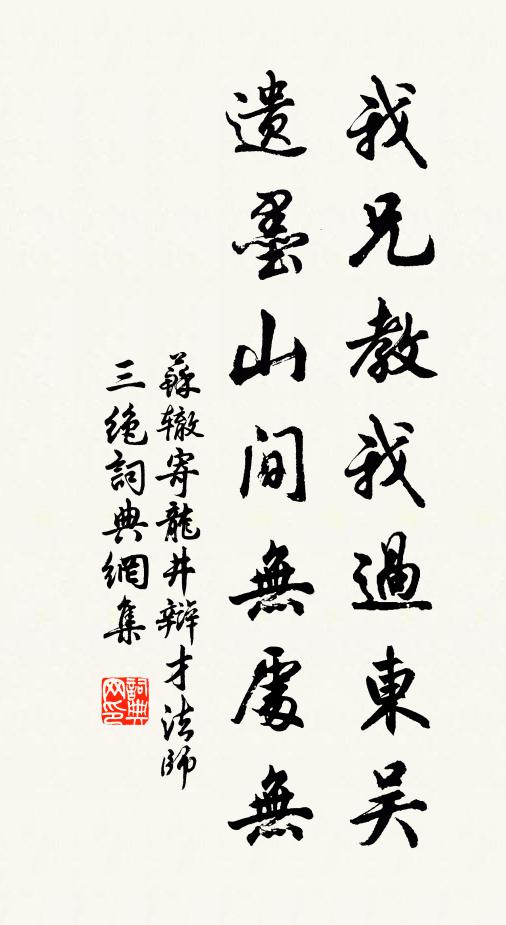 我兄教我過東吴
遺墨山間無處無
蘇轍寄龍井辯才法師
三絶詞典網集
詞典网印